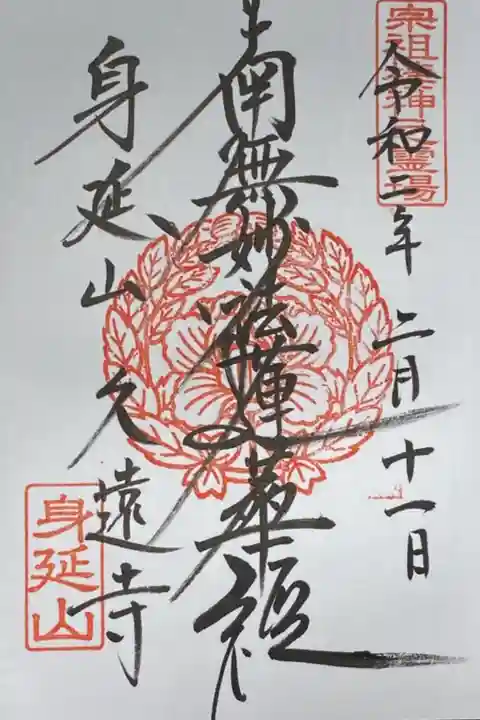 宗祖棲神之霊場
令和二年 二月十一日
南無妙法蓮華経
身延山久遠寺
身延山